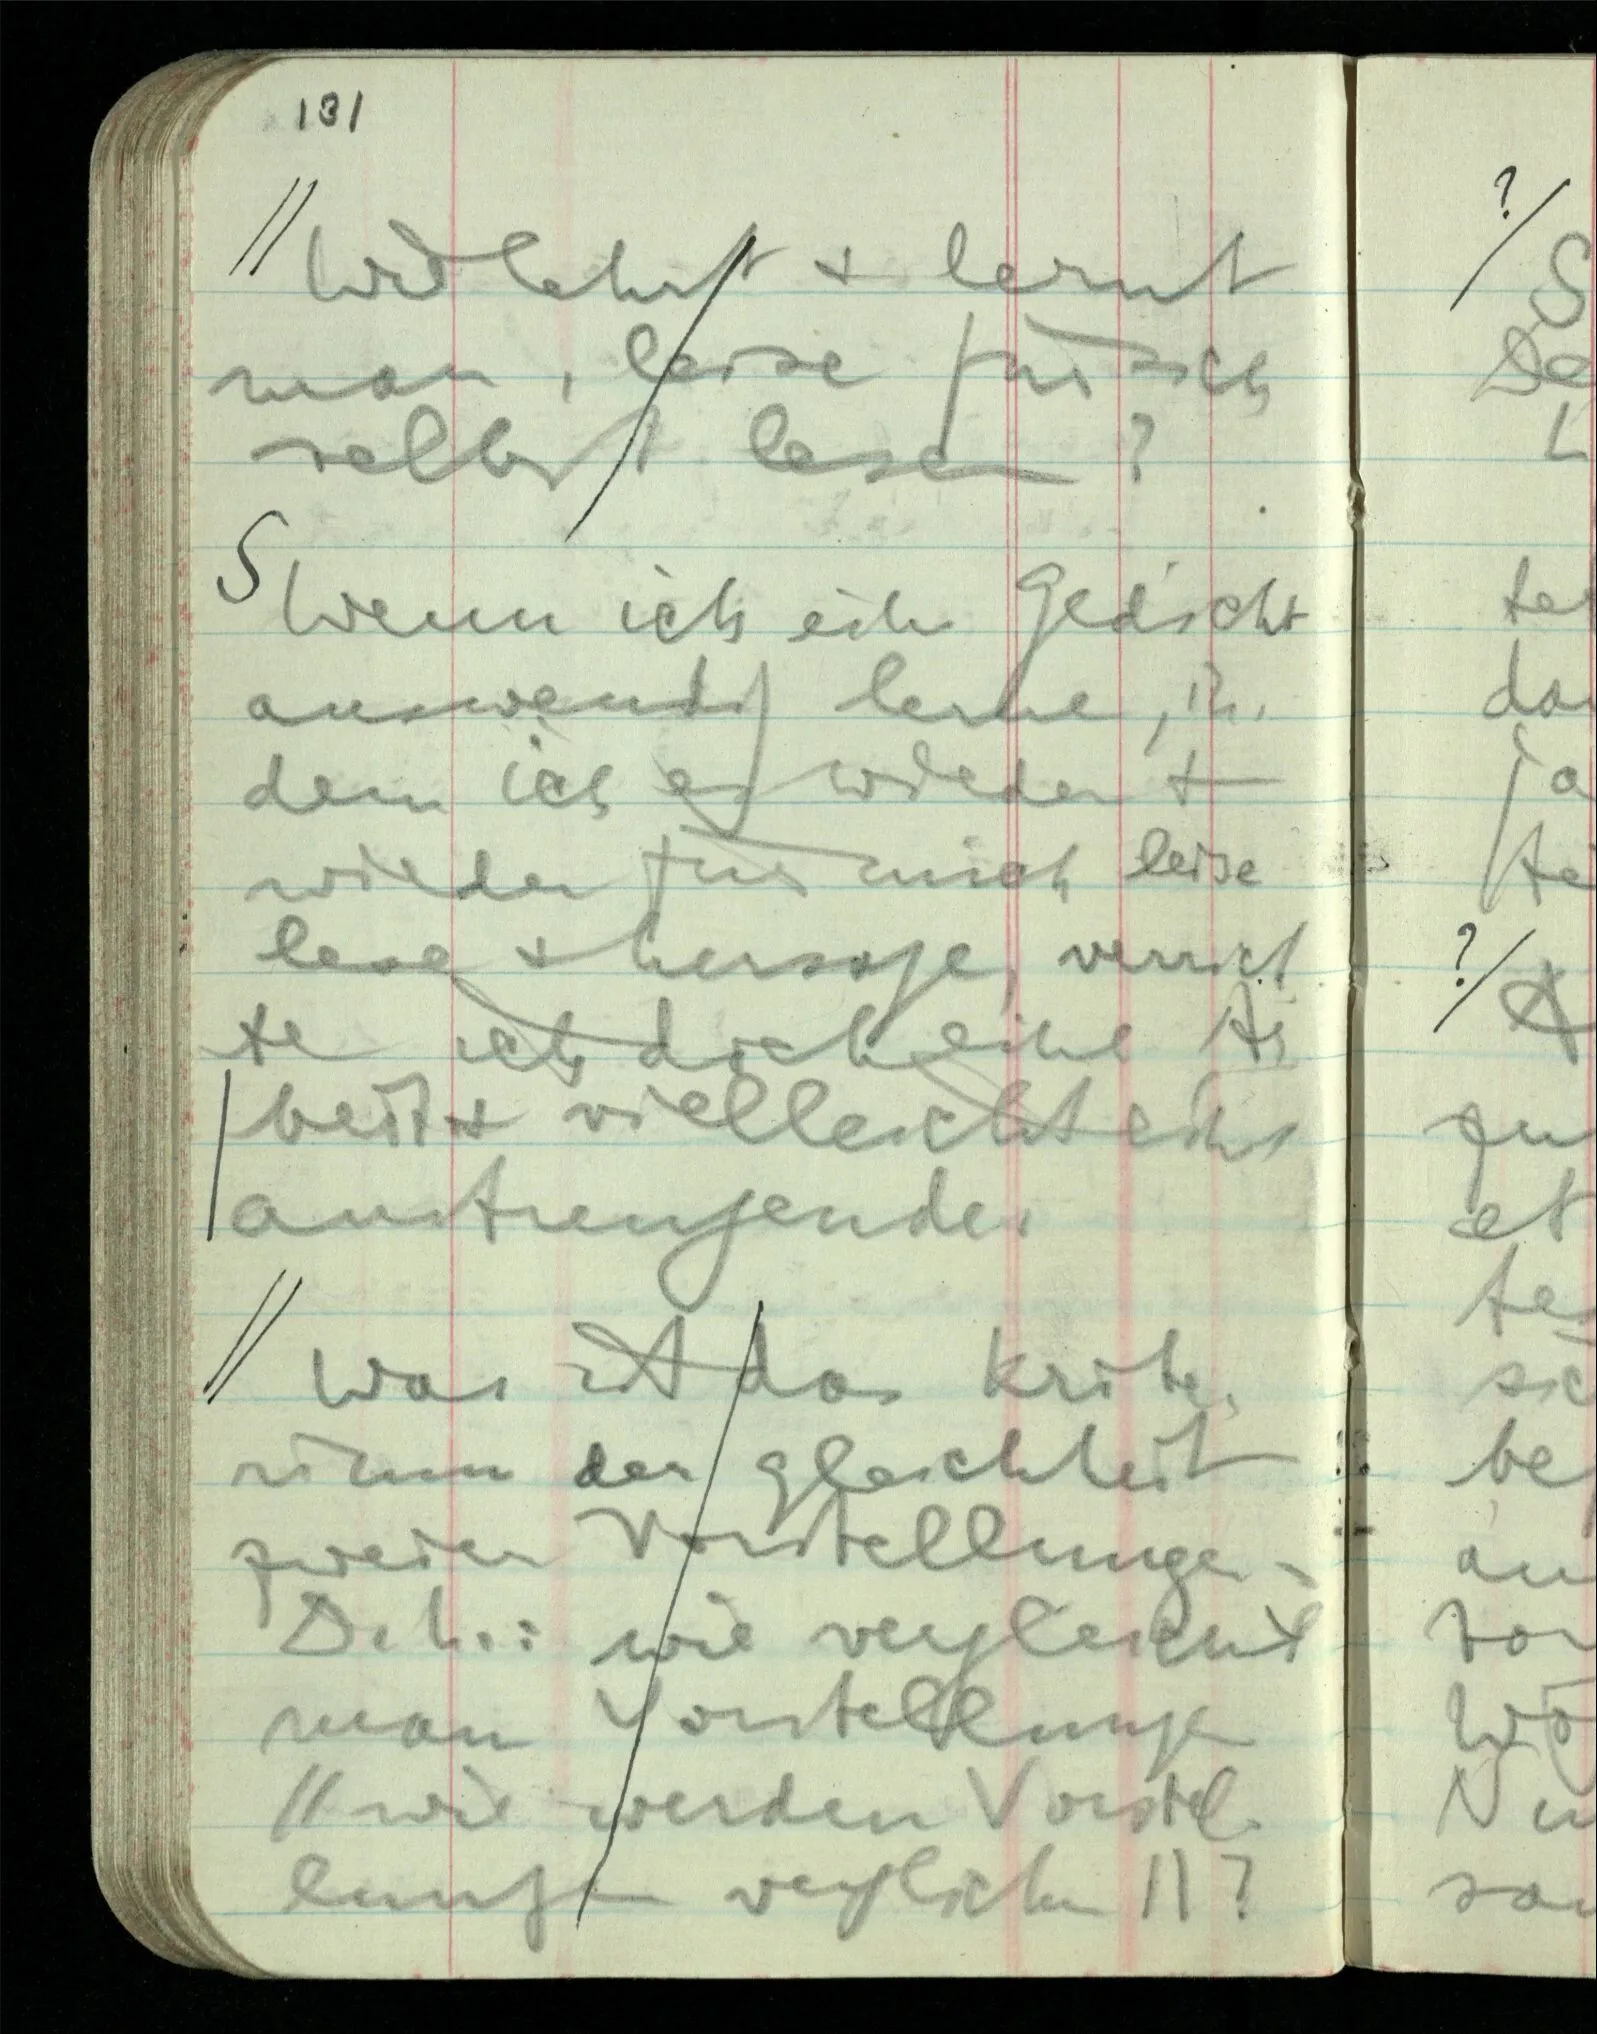 131
// Wie lehrt + lernt
man, leise für sich
selbst lesen?
S Wenn ich ein Gedicht
auswendig lerne, in¬
dem ich es wieder +
wieder für mich leise
lese + hersage, verrich
te ich doch eine Ar
beit + vielleicht eine
anstrengende.
// Was ist das Krite¬
rium der Gleichheit
zweier Vorstellungen –
D.h.: wie vergleicht
man Vorstellungen
// wie werden Vorstel¬
lungen verglichen //?
?/
S
De
ter
da
ja
te
?/
A
zu
et
te
sic
be
an
Vor
Wo
Nu